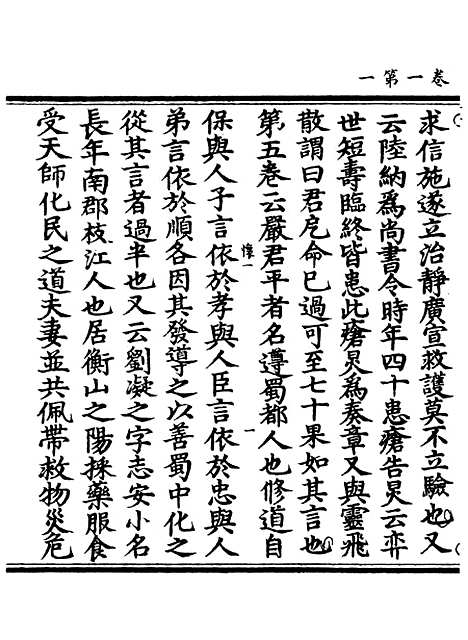 卷第一一
求信施遂立治靜廣宣救護莫不立驗也又
云陸納爲尚書令時年四十患瘡告炅云弈
世短壽臨終皆患此瘡炅爲奏章又與靈飛
散謂曰君厄命已過可至七十果如其言也
第五卷云嚴君平者名遵蜀都人也修道自
保與人子言依於孝與人臣言依於忠與人
弟言依於順各因其發導之以善蜀中化之
從其言者過半也又云劉凝之字志安小名
長年南郡枝江人也居衡山之陽採藥服食
受天師化民之道夫妻並共佩帶救物災危